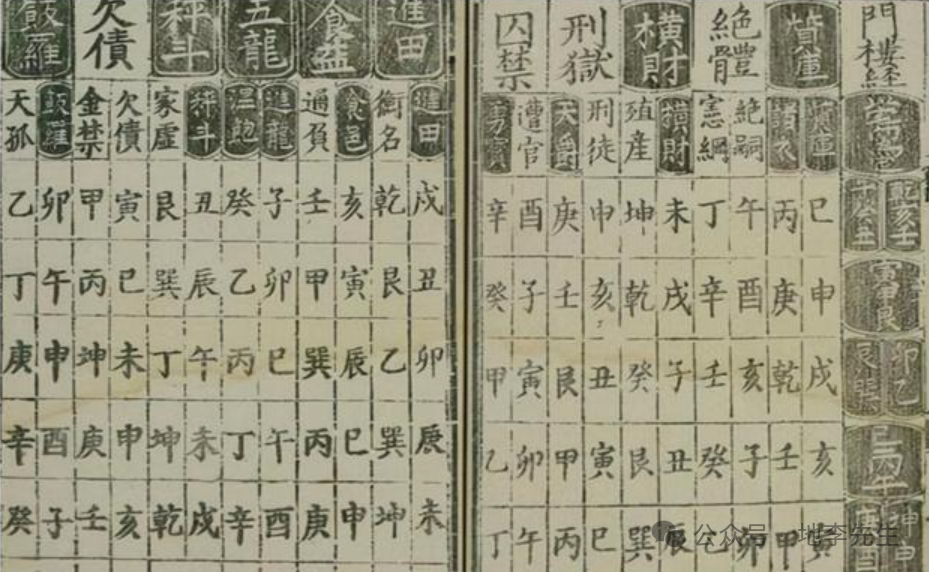 門樓經
質庫
質庫巳申戌亥寅
丙庚乾壬甲
絶體
絶嗣午酉亥子卯
憲綱丁辛壬癸乙
橫財
橫財未戌子丑辰
殖産坤乾癸艮巽
刑獄
刑徒申亥丑寅巳
天爵庚壬艮甲丙
囚禁
遭官酉子寅卯午
辛癸甲乙丁
進田
進田戌丑卯辰未
銜名乾艮乙巽坤
食
食邑亥寅辰巳申
過負壬甲巽丙庚
五龍
進龍子卯巳午酉
温飽癸乙丙丁辛
秤斗
秤斗丑辰午未戌
家虛艮巽丁坤乾
欠債
欠債寅巳未申亥
金禁甲丙坤庚壬
飯籮
飯籮卯午申酉子
天孤乙丁庚辛癸
寅艮
卯乙
公众号 · 地李先生